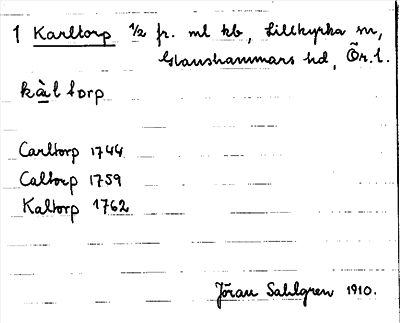 1 Karltorp 1/2 fr. ml kb, Lillkyrka sn,
Glanshammars hd, Ör. l.
kàltorp
Carltorp 1744
Caltorp 1759
Kaltorp 1762
Jöran Sahlgren 1910.